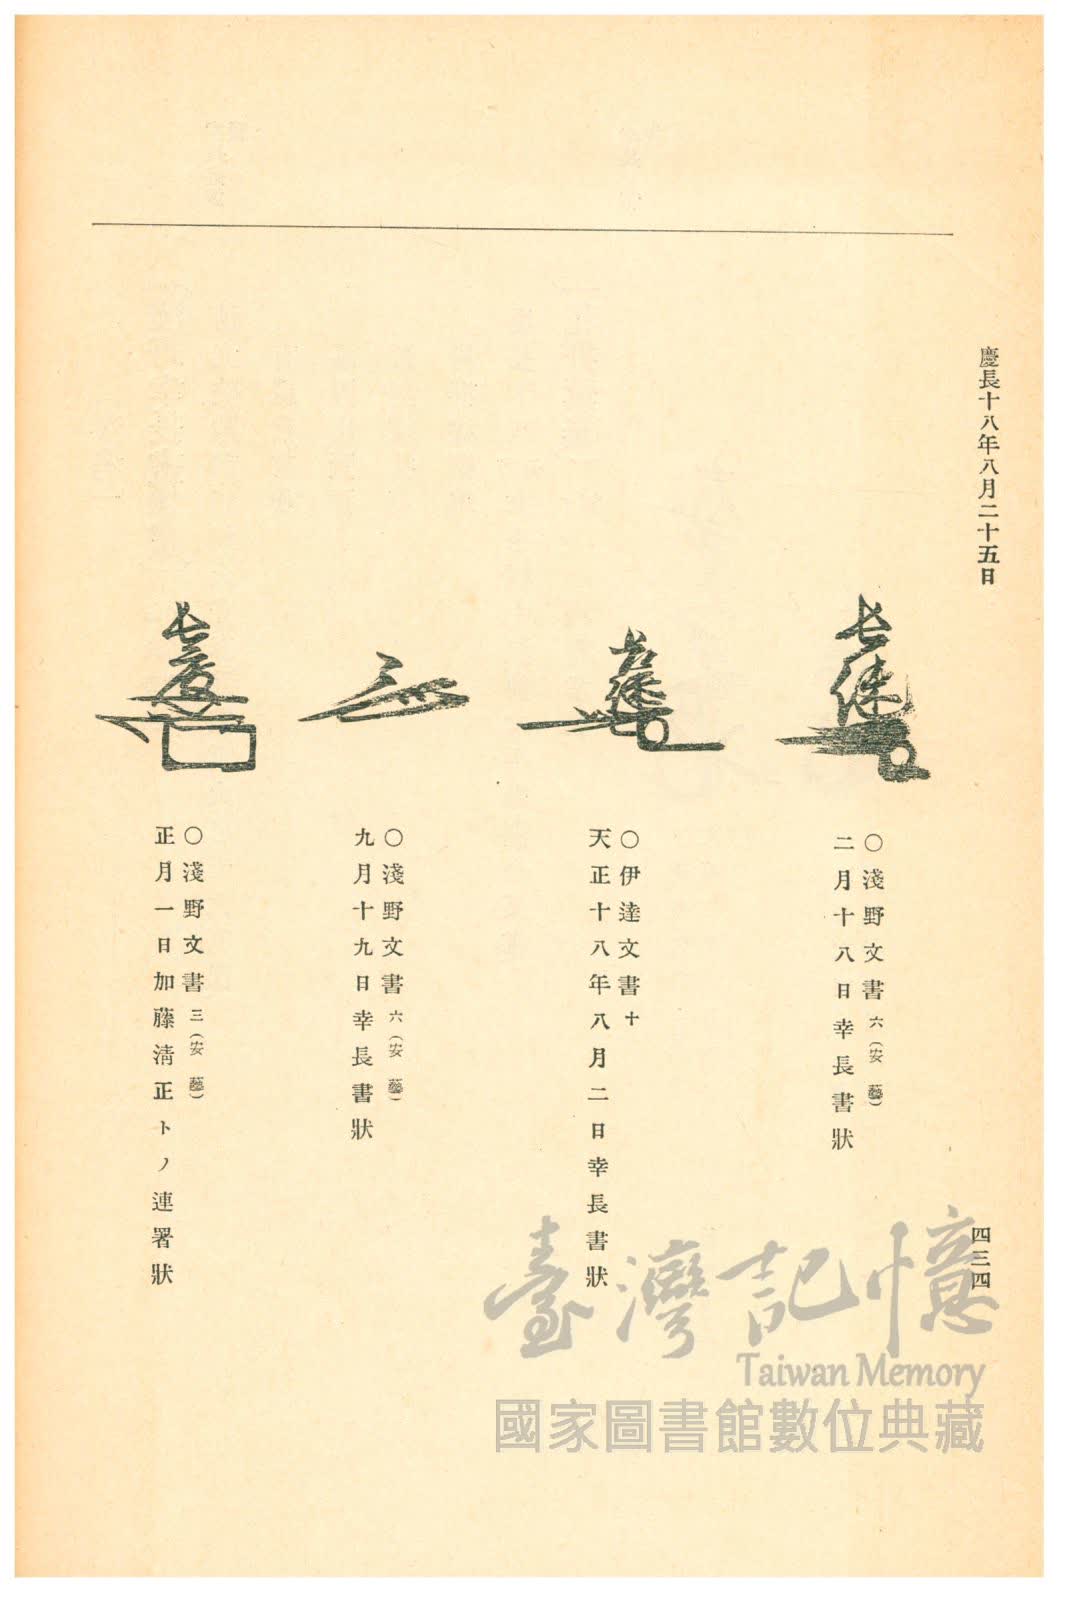 慶長十八年八月二十五日
四三四
〇淺野文書 六(安藝)
二月十八日幸長書狀
〇伊達文書 十
天正十八年八月二日幸長書狀
〇淺野文書 六(安藝)
九月十九日幸長書狀
〇淺野文書 三(安藝)
正月一日加藤淸正トノ連署狀
臺灣記憶
Taiwan Memory
國家圖書館數位典藏